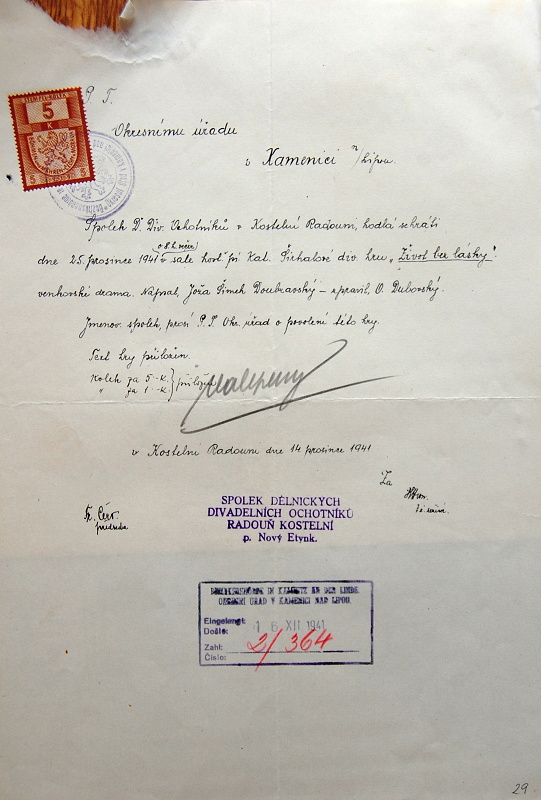 P. T.
5
K
5 5
Okresnímu úřadu
v Kamenici n/Lipou.
Spolek D. Div. Ochotníků v Kostelní Radouni, hodlá sehráti
o 8 h. večer
dne 25. prosince 1941 v sále host. pí Kat. Šírhalové div. hru „Život bez lásky".
venkovské drama. Napsal, Joža Šimek Doubravský – upravil, O. Dubovský.
Jmenov. spolek, prosí P. T. Okr. úřad o povolení této hry.
Text hry přiložen.
Kolek za 5 K. } přiložen
" za 1 K.
v Kostelní Radouni dne 14 prosince 1941
Za
Fr. Čech
předseda
SPOLEK DĚLNICKÝCH
DIVADELNÍCH OCHOTNÍKŮ
RADOUŇ KOSTELNÍ
p. Nový Etynk.
BEZIRKSBEHÖRDE IN KAMENITZ AN DER LINDE.
OKRESNÍ ÚŘAD V KAMENICI NAD LIPOU.
Eingelangt:
Došlo: 16 XII 1941
Zahl: 2/364
Číslo:
29